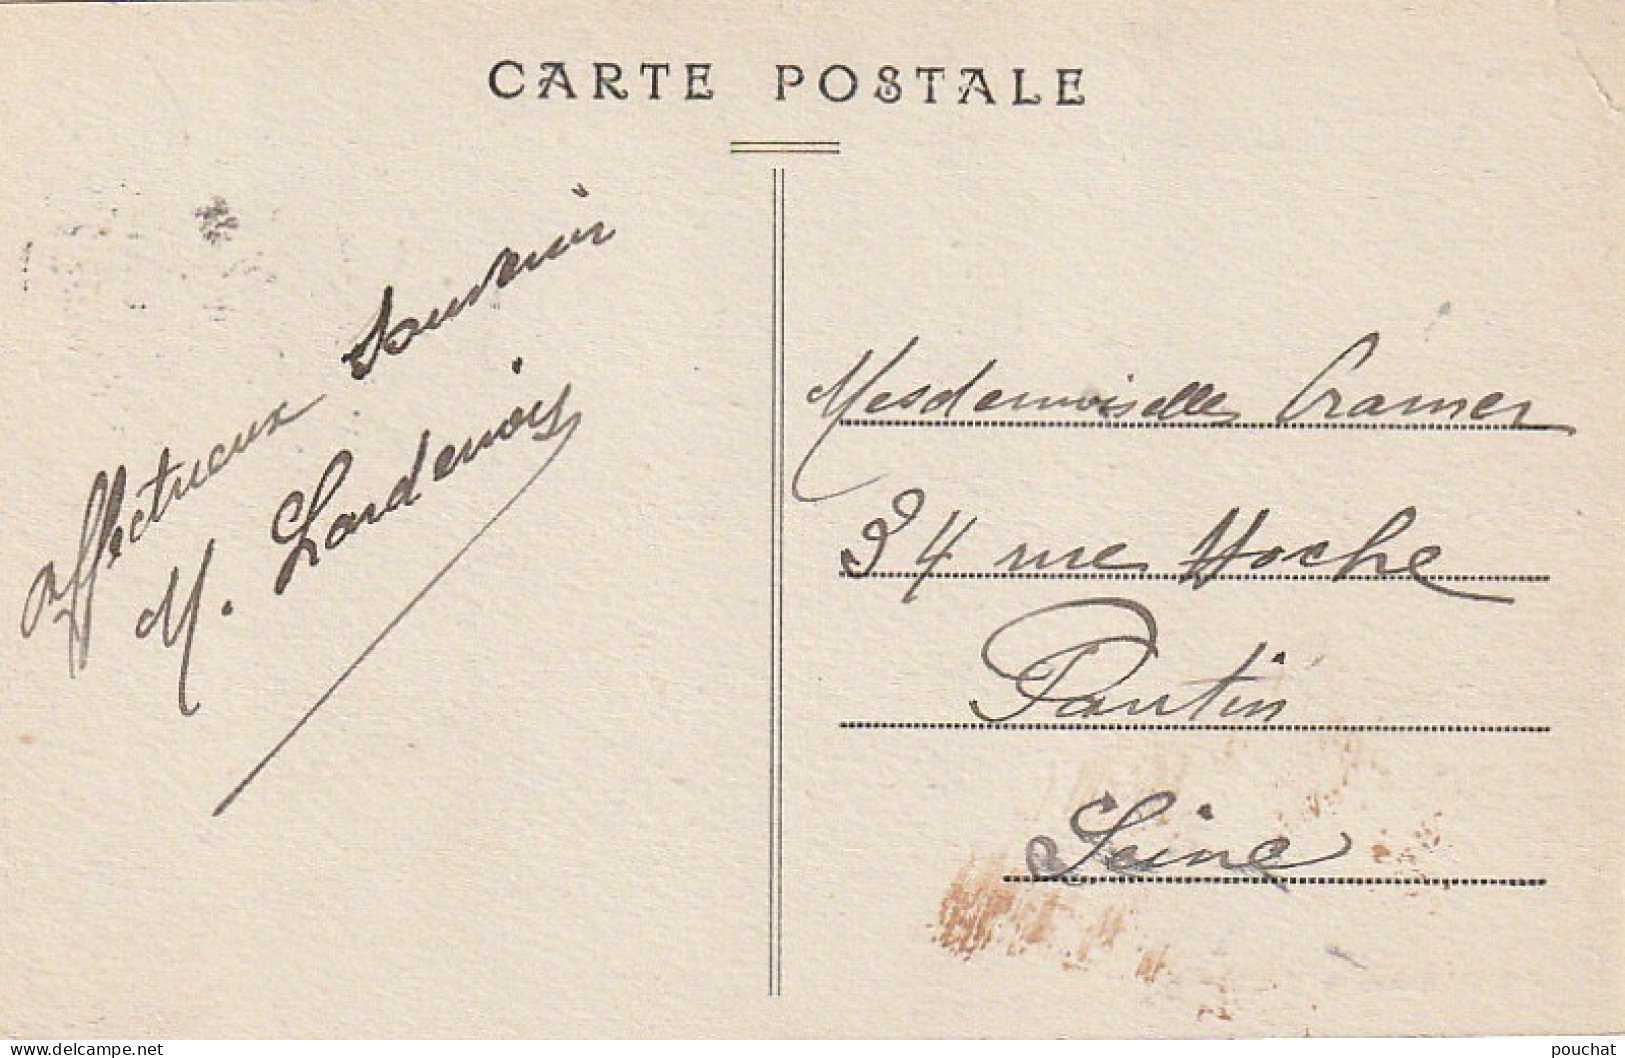 CARTE POSTALE
Affectueux Souvenir
M.
Mesdemoiselles Cramer
34 rue Hoche
Pantin
Seine
www.delcampe.net
pouchat